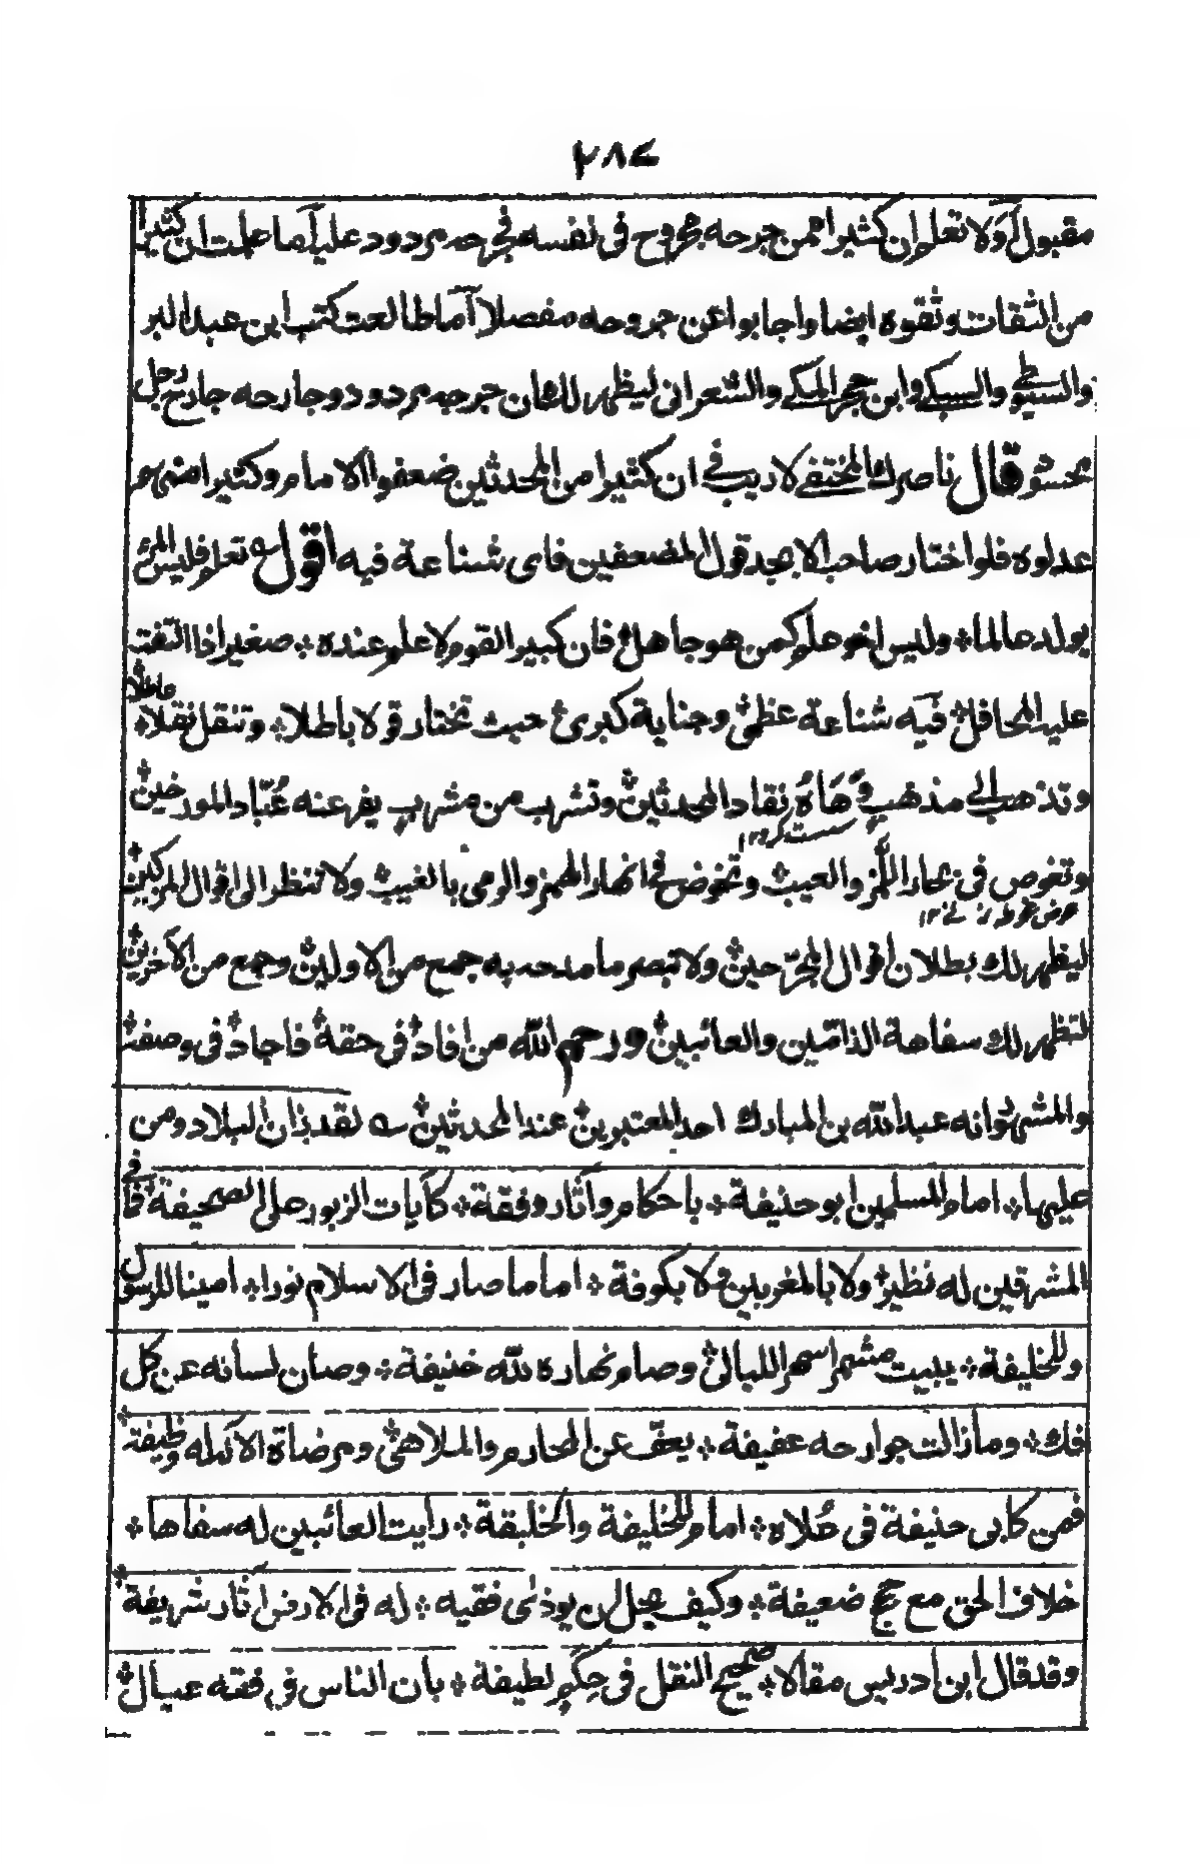 ٢٨٤
مقبول أولا تعلم ان كثيرا ممن جرحه مجروح فى نفسه فجرحه مردود عليه أما علمت ان كثيرا
من الثقات وثقوه ايضا واجابوا عن جروحه مفصلا أما طالعت كتب ابن عبد البر
والسيوطي والسبكے وابن حجر المكے والشعرانى ليظهر لك ان جرحه مردود وجارحه جارح رجل
محشو قال ناصرك المختفے لا ريب فے ان كثيرا من المحدثين ضعفوا الامام وكثيرا منهم
عدلوه فلو اختار صاحب الابجد قول المضعفين فاى شناعة فيه اقول ؎ تعلم فليس المرء
يولد عالما ٭ وليس اخو علم كمن هو جاهل ٭ فان كبير القوم لا علم عنده ٭ صغير اذا التفت
عليه المحافل ٭ فيه شناعة عظمى ٭ وجناية كبرى ٭ حيث تختار قولا باطلا ٭ وتنقل نقلا عاطلا ٭
وتذهب الے مذهب وهاه نقاد المحدثين ٭ وتشرب من مشرب يفر عنه عباد المورخين ٭
سست كرد ١٢
وتغوص فى بحار اللمز والعيب ٭ وتخوض فے انهار الهمز والرمى بالغيب ٭ ولا تنظر الى اقوال المزكين ٭
ليظهر لك بطلان اقوال المجرحين ٭ ولا تبصر ما مدحه به جمع من الاولين ٭ وجمع من الآخرين ٭
لتظهر لك سفاهة الذامين والعائبين ٭ ورحم الله من افاد ٭ فى حقه ٭ فاجاد ٭ فى وصفه ٭
والمشهور انه عبد الله بن المبارك احد المعتبرين ٭ عند المحدثين ٭ ؎ لقد زان البلاد ومن
عليها ٭ امام المسلمين ابو حنيفة ٭ باحكام وآثار وفقة ٭ كآيات الزبور على الصحيفة ٭ فما فے
المشرقين له نظير ٭ ولا بالمغربين ولا بكوفة ٭ اماما صار فى الاسلام نورا ٭ امينا للرسول
وللخليفة ٭ يبيت مشمرا سهر الليالى ٭ وصام نهاره لله خيفة ٭ وصان لسانه عن كل
افك ٭ وما زالت جوارحه عفيفة ٭ يعف عن المحارم والملاهى ٭ ومرضاة الاله له وظيفة ٭
فمن كابى حنيفة فى علاه ٭ امام للخليفة والخليقة ٭ رأيت العائبين له سفاها ٭
خلاف الحق مع حجج ضعيفة ٭ وكيف يحل ان يوذى فقيه ٭ له فى الارض آثار شريفة ٭
وقد قال ابن ادريس مقالا ٭ صحيح النقل فى حكم لطيفة ٭ بان الناس في فقه عيال ٭